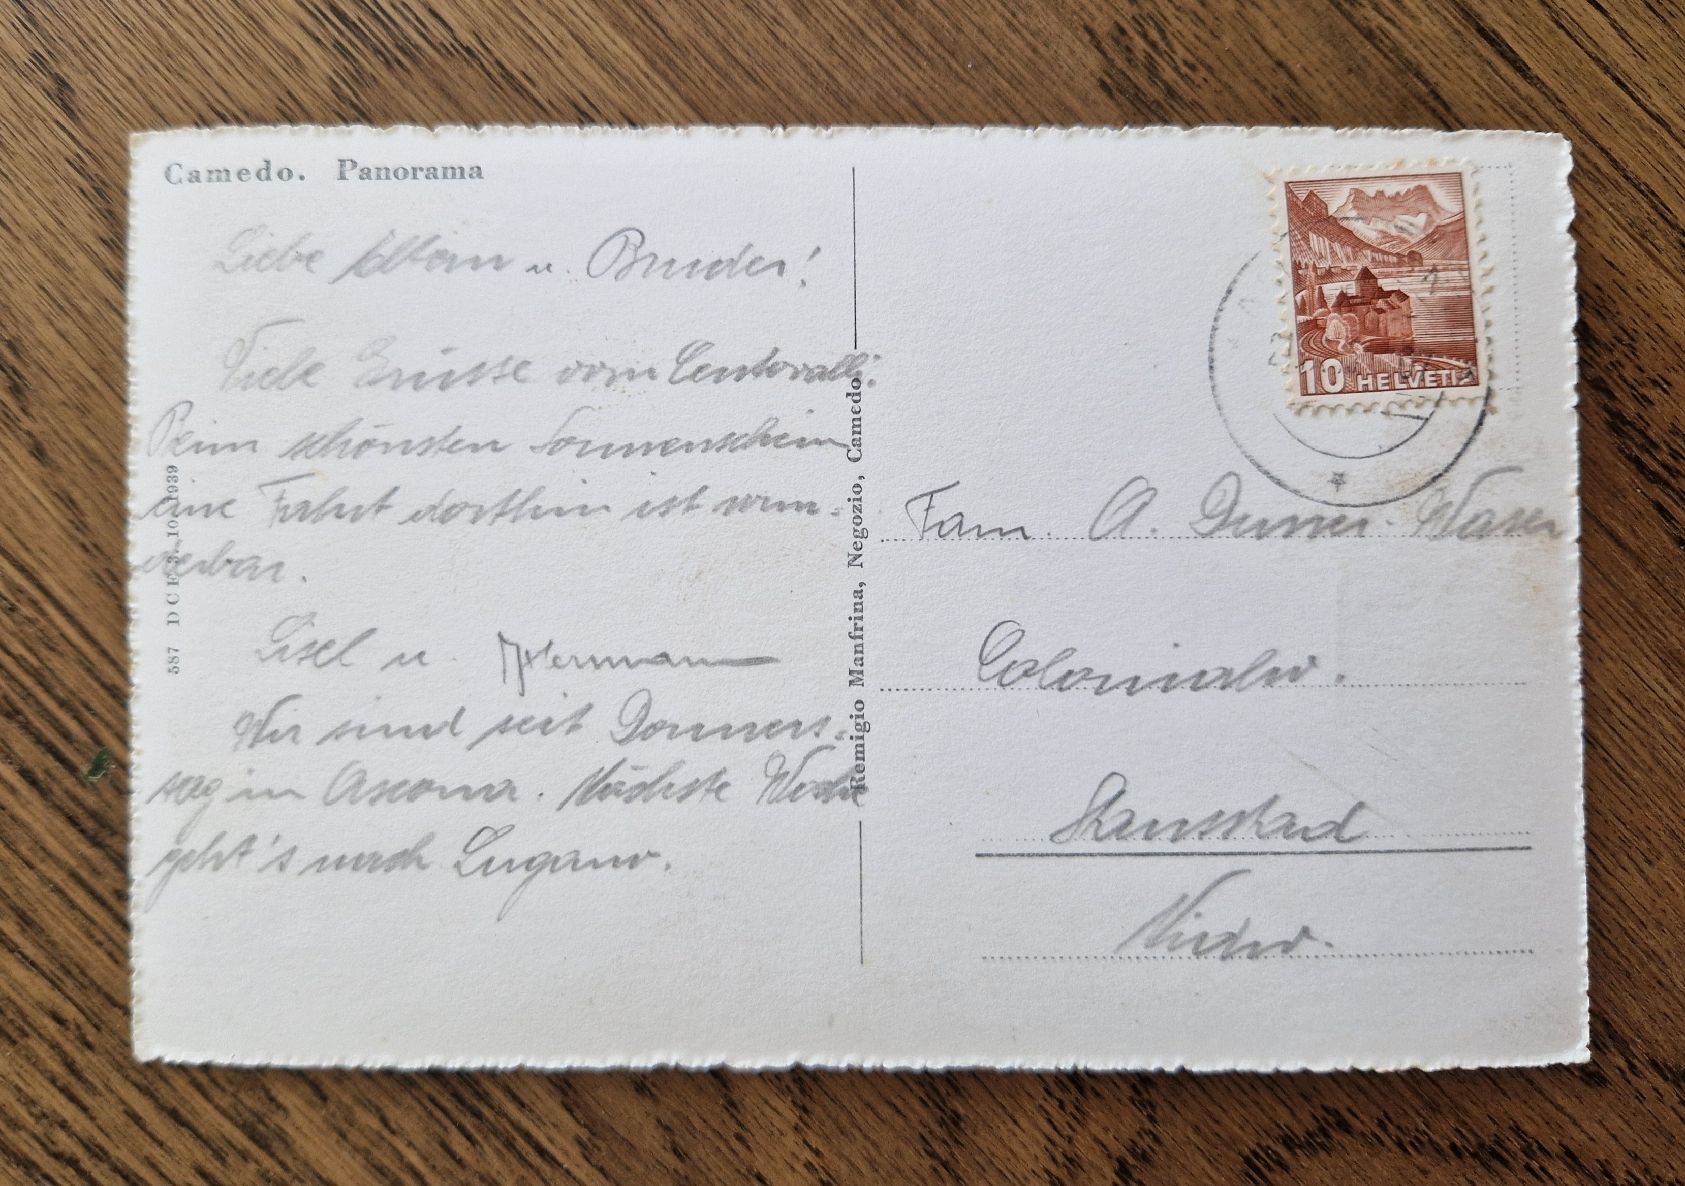 Camedo. Panorama
Liebe Eltern u. Bruder!
Viele Grüsse vom Centovalli.
Beim schönsten Sonnenschein
eine Fahrt dorthin ist wun-
derbar.
Lisel u. Hermann
Wir sind seit Donners-
tag in Ascona. Nächste Woche
geht's nach Lugano.
587 DCF 3.10.1939
Remigio Manfrina, Negozio, Camedo
10 HELVETIA
Fam. A. Durrer-Waser
Colonialw.
Stansstad
Nidw.